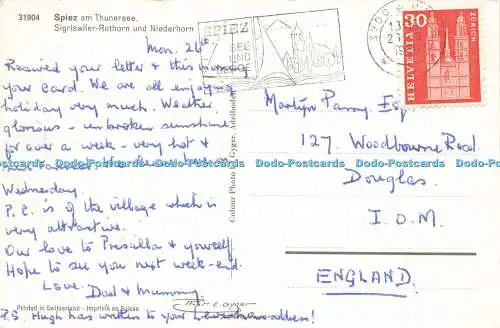 31904 Spiez am Thunersee.
Sigriswiler-Rothorn und Niederhorn
Mon. 26th
Received your letter & this morning
your card. We are all enjoying
holiday very much. Weather
glorious - unbroken sunshine
for over a week - very hot &
Wednesday.
P.C. is of the village which is
very attractive.
Our love to Presilla & yourself.
Hope to see you next week-end.
Love.
Dad & Mummy
Printed in Switzerland - Imprimé en Suisse
P.S. Hugh has written to your address!
Colour Photo Gyger, Adelboden
SPIEZ
SEE
HELVETIA 30
ZÜRICH
Martyn Parry Esq.
127, Woodbourne Road
Douglas
I.O.M.
ENGLAND.
Dodo-Postcards Dodo-Postcards Dodo-Postcards Dodo-Postcards Dodo-Postcards Dodo-Postcards